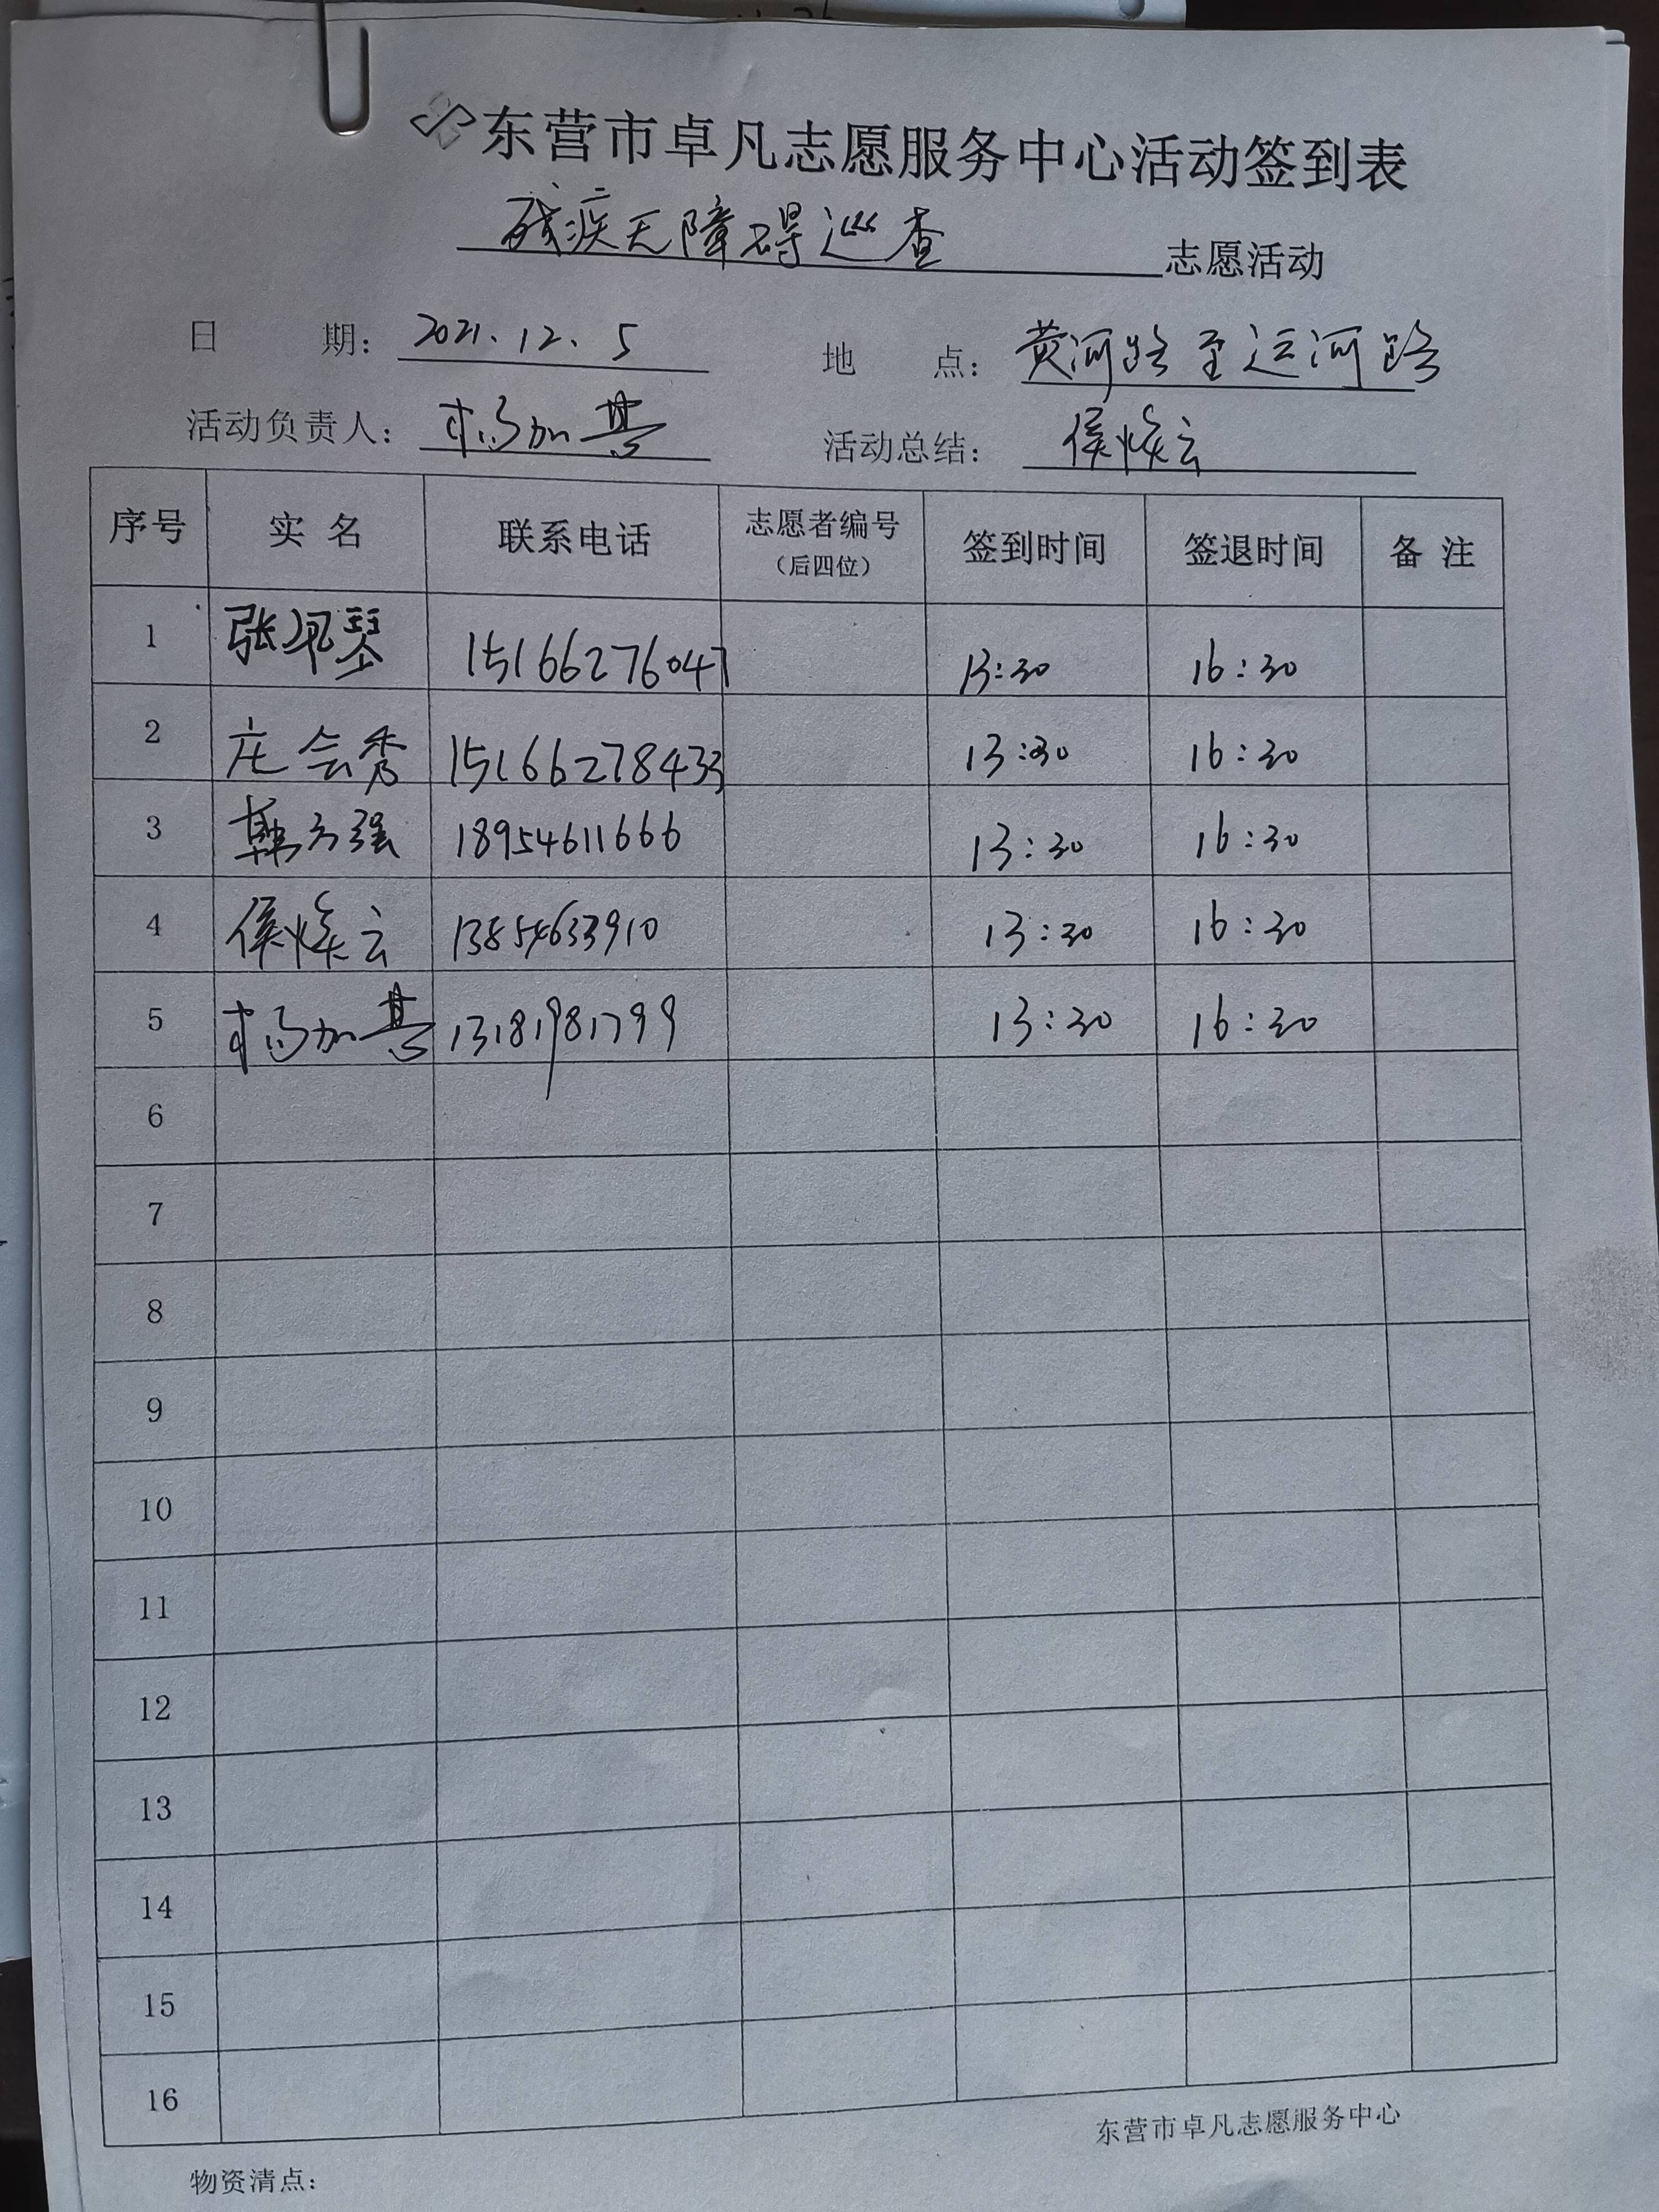 东营市卓凡志愿服务中心活动签到表
残疾无障碍巡查 志愿活动
日 期: 2021.12.5 地 点: 黄河路至运河路
活动负责人: 杨加其 活动总结: 侯焕云
序号 实 名 联系电话 志愿者编号 (后四位) 签到时间 签退时间 备 注
1 张凤琴 15166276047 13:30 16:30
2 庄会秀 15166278433 13:30 16:30
3 韩方强 18954611666 13:30 16:30
4 侯焕云 13854633910 13:30 16:30
5 杨加其 13181981799 13:30 16:30
6
7
8
9
10
11
12
13
14
15
16
东营市卓凡志愿服务中心
物资清点: